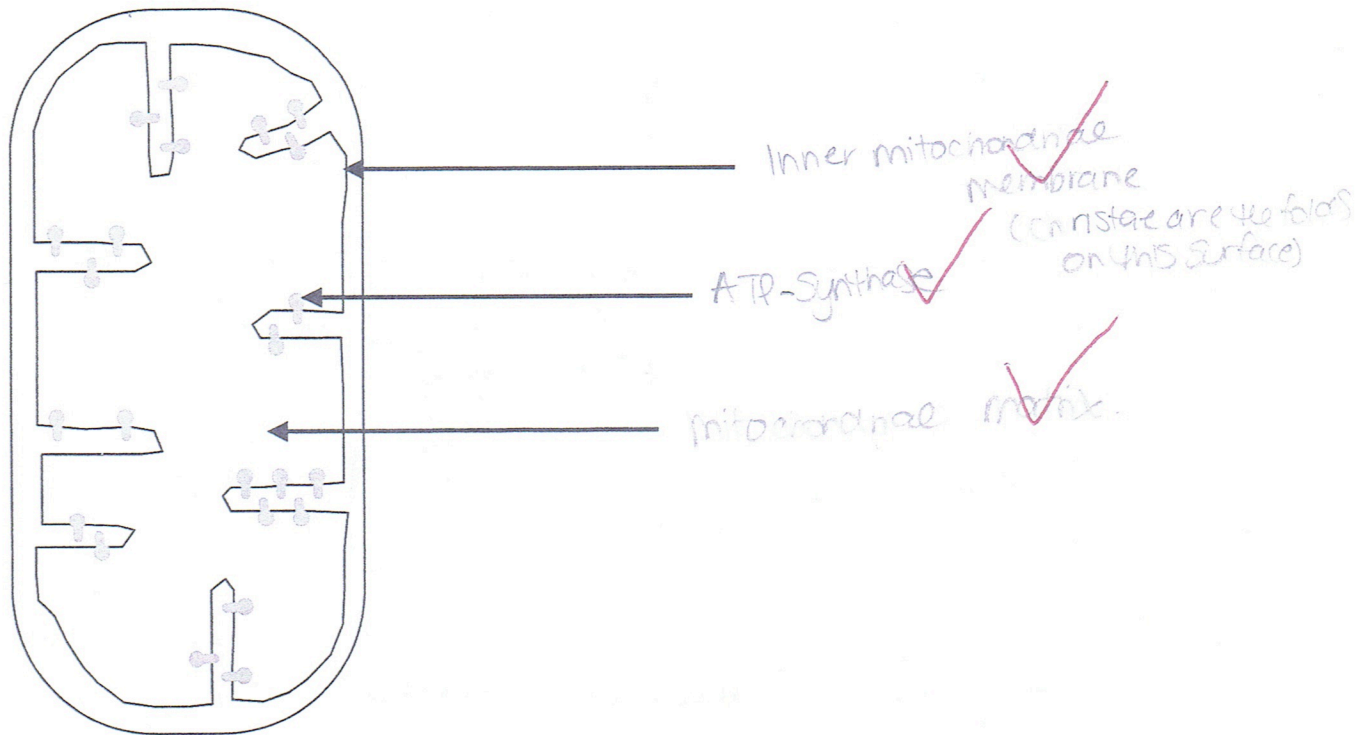 Inner mitochondriae
membrane
(Christae are the folds
on this surface)
ATP-Synthase
mitochondriae matrix.